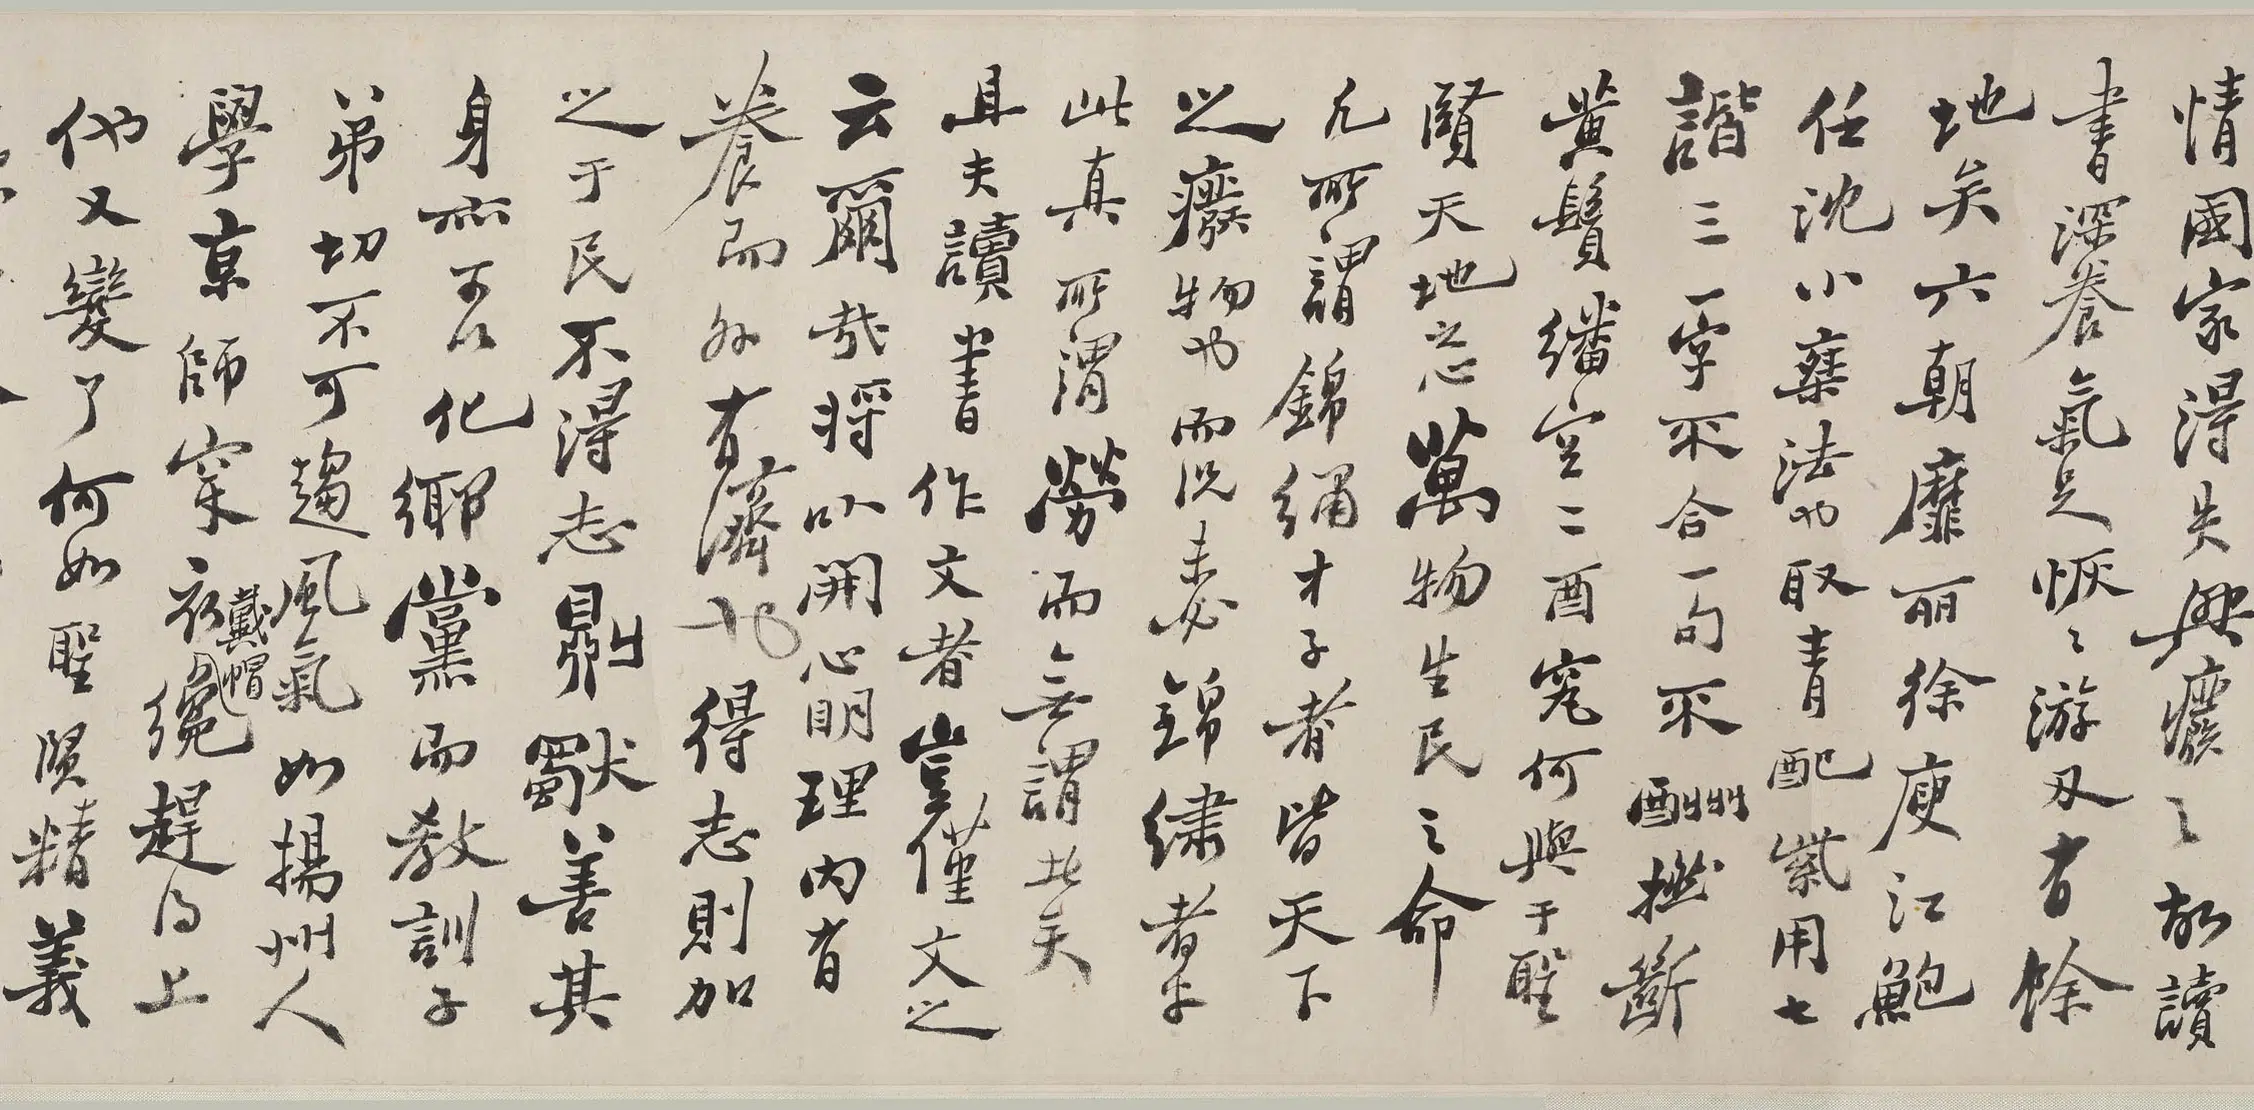 情國家得失興癈之故讀
書深養氣足恢々游刃有餘
地矣六朝靡丽徐庾江鮑
任沈小棄法也取青配紫用七
諧三一字不合一句不酬撚斷
黄鬚繙空二酉究何與于聖
賢天地之心萬物生民之命
凢所謂錦綉才子者皆天下
之癈物也而況未必錦綉者乎
此真所谓勞而無謂者矣
且夫讀書作文者豈僅文之
云爾哉将以開心明理內有
養而外有濟也得志則加
之于民不得志則獨善其
身亦可以化鄉黨而教訓子
弟切不可趨風氣如揚州人
學京師穿衣戴帽纔趕得上
他又變了何如聖贤精義